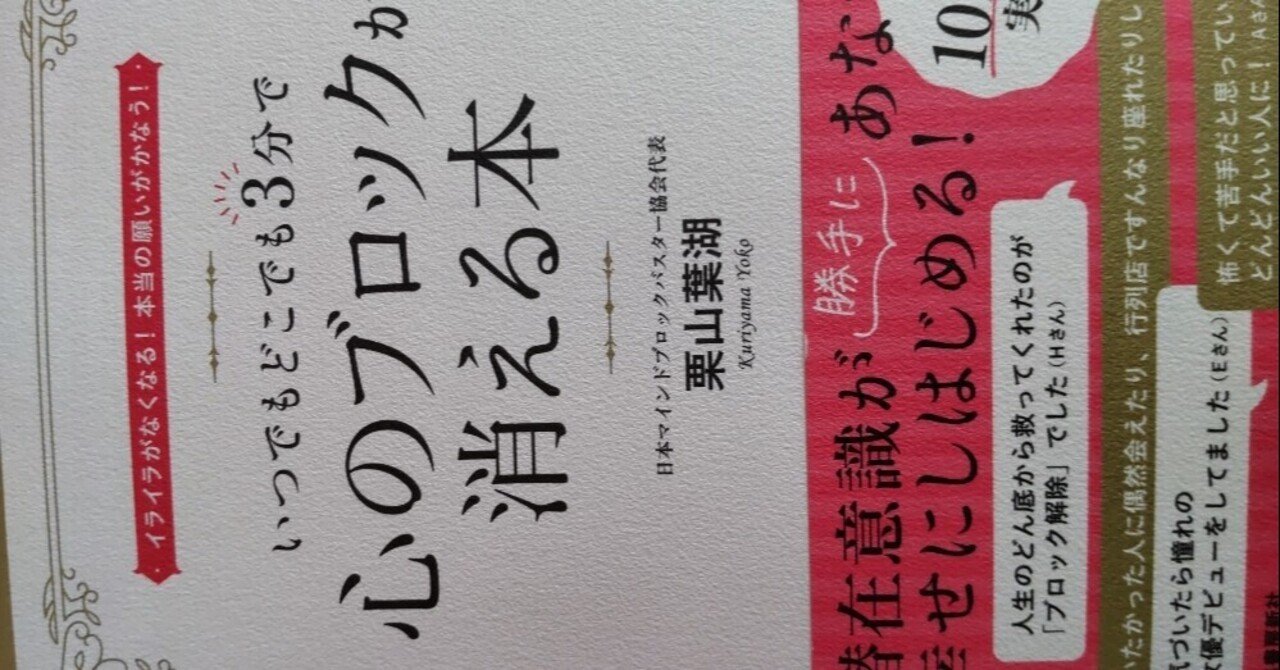 イライラがなくなる!本当の願いがかなう!
いつでもどこでも3分で
心のブロックが
消える本
日本マインドブロックバスター協会代表
栗山葉湖
Kuriyama Yoko
潜在意識が勝手にあな
幸せにしはじめる!
10
実
人生のどん底から救ってくれたのが
「ブロック解除」でした(Hさん)
たかった人に偶然会えたり、行列店ですんなり座れたりし
気づいたら憧れの
優デビューをしてました(Eさん)
怖くて苦手だと思ってい
どんどんいい人に!(Aさ